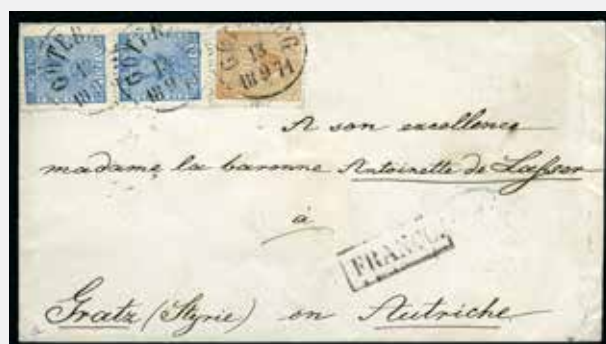 GÖTEB
13
18 9 71
GÖTEB
13
18 9 71
G RG
13
18 9 71
A son excellence
madame la baronne Antoinette de Lasser
à
FRANCO
Gratz (Styrie) en Autriche